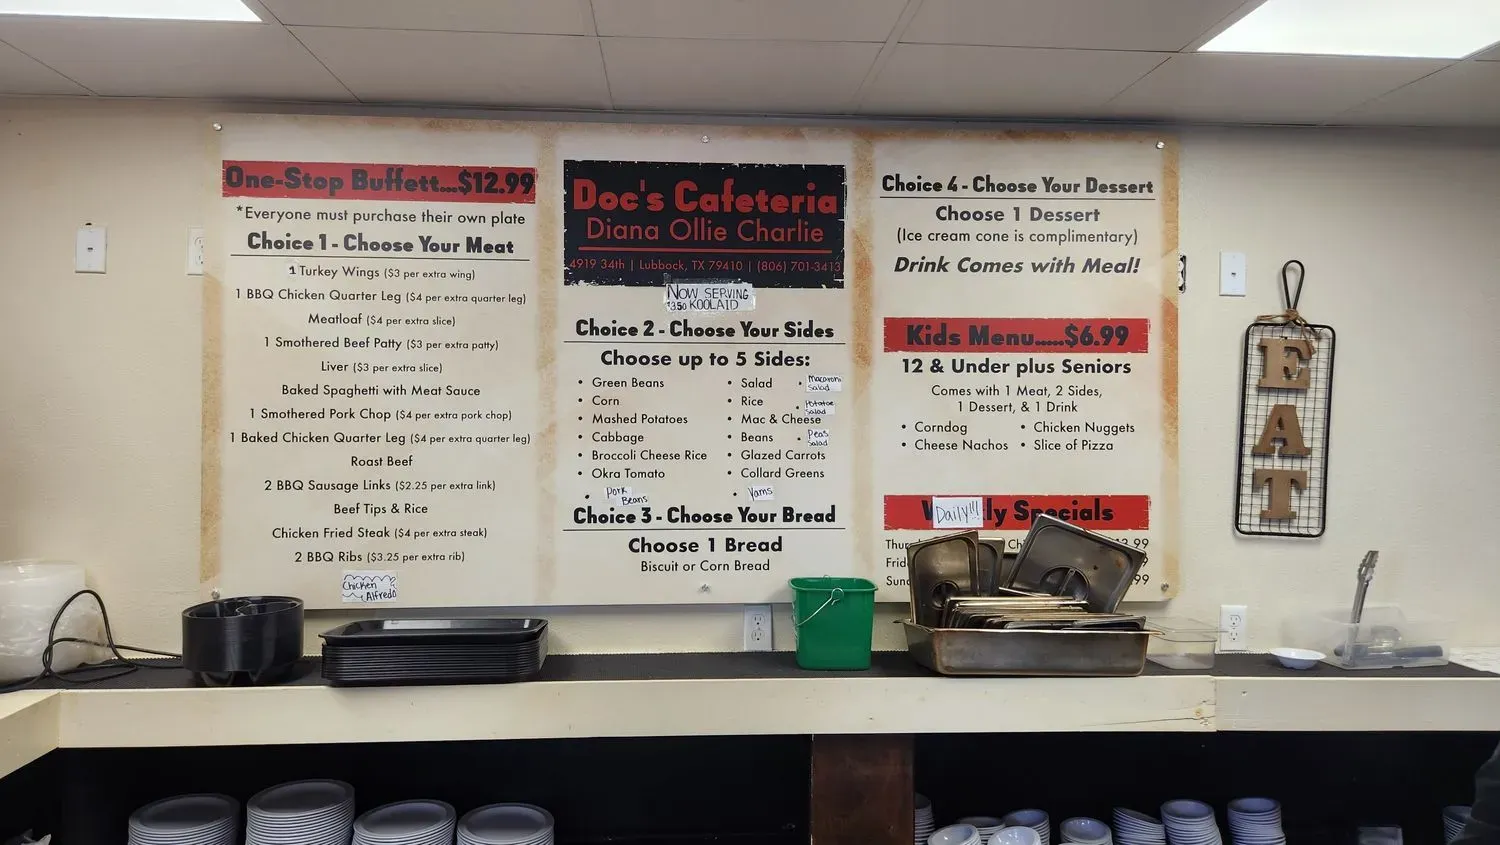 One-Stop Buffett...$12.99
*Everyone must purchase their own plate
Choice 1 - Choose Your Meat
1 Turkey Wings ($3 per extra wing)
1 BBQ Chicken Quarter Leg ($4 per extra quarter leg)
Meatloaf ($4 per extra slice)
1 Smothered Beef Patty ($3 per extra patty)
Liver ($3 per extra slice)
Baked Spaghetti with Meat Sauce
1 Smothered Pork Chop ($4 per extra pork chop)
1 Baked Chicken Quarter Leg ($4 per extra quarter leg)
Roast Beef
2 BBQ Sausage Links ($2.25 per extra link)
Beef Tips & Rice
Chicken Fried Steak ($4 per extra steak)
2 BBQ Ribs ($3.25 per extra rib)
Chicken
Alfredo
Doc's Cafeteria
Diana Ollie Charlie
4919 34th | Lubbock, TX 79410 | (806) 701-3413
NOW SERVING
$3.50 KOOLAID
Choice 2 - Choose Your Sides
Choose up to 5 Sides:
• Green Beans
• Corn
• Mashed Potatoes
• Cabbage
• Broccoli Cheese Rice
• Okra Tomato
• Pork
Beans
• Salad
• Rice
• Mac & Cheese
• Beans
• Glazed Carrots
• Collard Greens
• Yams
• Macaroni
Salad
• Potatoe
Salad
• Peas
Salad
Choice 3 - Choose Your Bread
Choose 1 Bread
Biscuit or Corn Bread
Choice 4 - Choose Your Dessert
Choose 1 Dessert
(Ice cream cone is complimentary)
Drink Comes with Meal!
Kids Menu.....$6.99
12 & Under plus Seniors
Comes with 1 Meat, 2 Sides,
1 Dessert, & 1 Drink
• Corndog
• Cheese Nachos
• Chicken Nuggets
• Slice of Pizza
Daily!!! Specials
EAT